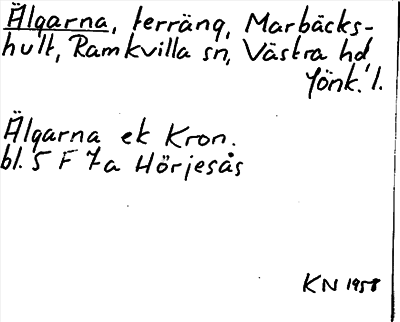 Älgarna, terräng, Marbäcks-
hult, Ramkvilla sn, Västra hd,
Jönk. l.
Älgarna ek Kron.
bl. 5 F 7a Hörjesås
KN 1958